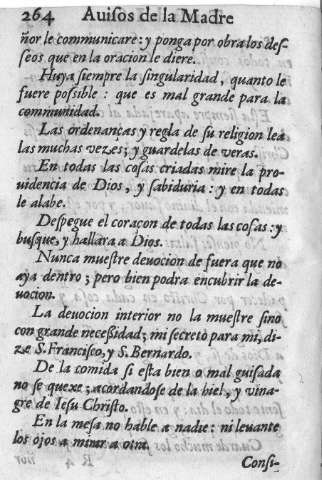 264 Avisos de la Madre
ñor le communicare: y ponga por obra los des-
seos que en la oracion le diere.
Huya siempre la singularidad, quanto le
fuere possible: que es mal grande para la
communidad.
Las ordenanças y regla de su religion lea
las muchas vezes; y guardelas de veras.
En todas las cosas criadas mire la pro-
uidencia de Dios, y sabiduria: y en todas
le alabe.
Despegue el coraçon de todas las cosas: y
busque, y hallara a Dios.
Nunca muestre deuocion de fuera que no
aya dentro; pero bien podra encubrir la de-
uocion.
La deuocion interior no la muestre sino
con grande necessidad; mi secreto para mi, di-
ze S. Francisco, y S. Bernardo.
De la comida si esta bien o mal guisada
no se quexe; acordandose de la hiel, y vina-
gre de Iesu Christo.
En la mesa no hable a nadie: ni leuante
los ojos a mirar a otra.
Consi-